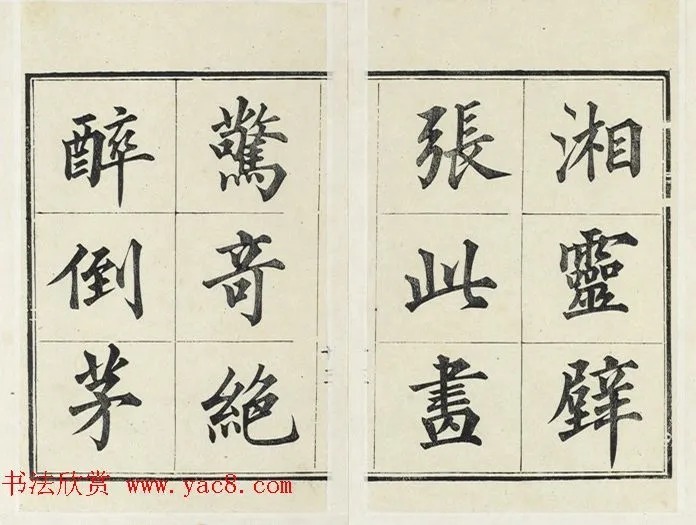 湘靈壁
張此畫
驚奇絶
醉倒茅
书法欣赏 www.yac8.com